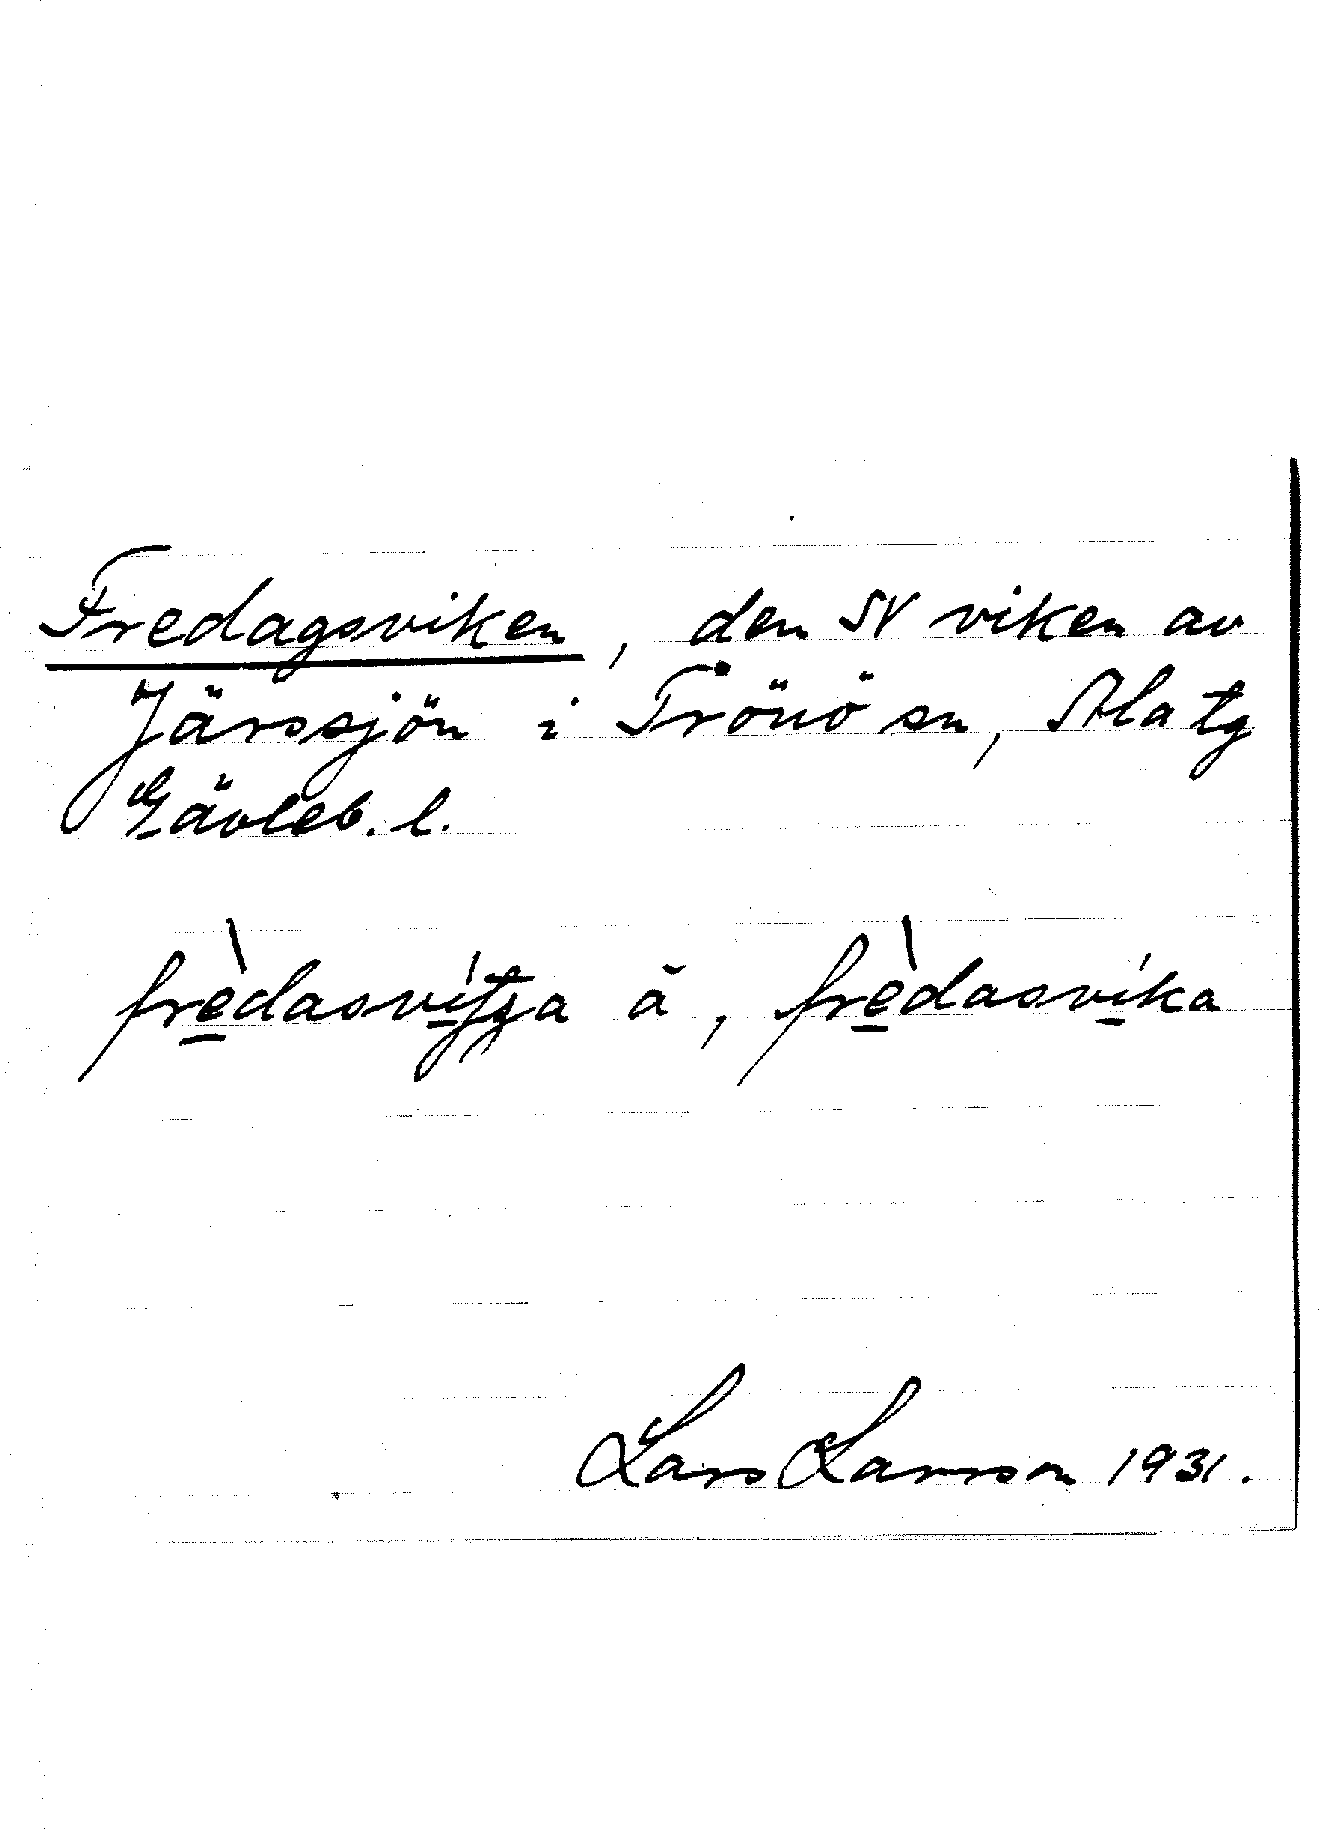 Fredagsviken, den N viken av
Järssjön i Trönö sn, Ala tg
Gävleb. l.
frèdasvítja ă, frèdasvíka
Lars Larsson 1931.